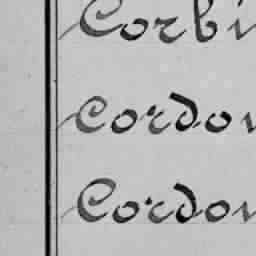 Corbi
Cordon
Cordon